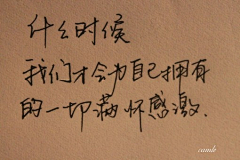 什么时候
我们才会为自己拥有
的一切满怀感激.
camile